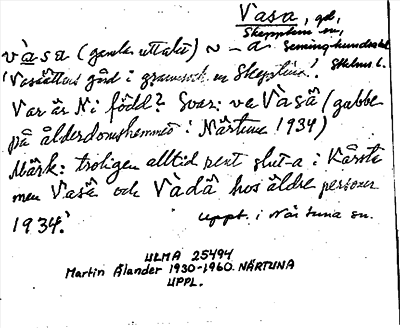 Vasa, gd,
Skepptuna sn,
Seminghundra hd
Sthlms l.
vàsa (gamla uttalet) ~ -a.
"Vasaättens gård i grannsock. en Skeptuna".
Var är Ni född? Svar: va Vàsä (gubbe
på ålderdomshemmet i Närtuna 1934)
Märk: troligen alltid rent slut-a i Kårsta
men Vasä och Vàdä hos äldre personer
1934.
uppt. i Närtuna sn.
ULMA 25494
Martin Ålander 1930-1960. NÄRTUNA
UPPL.